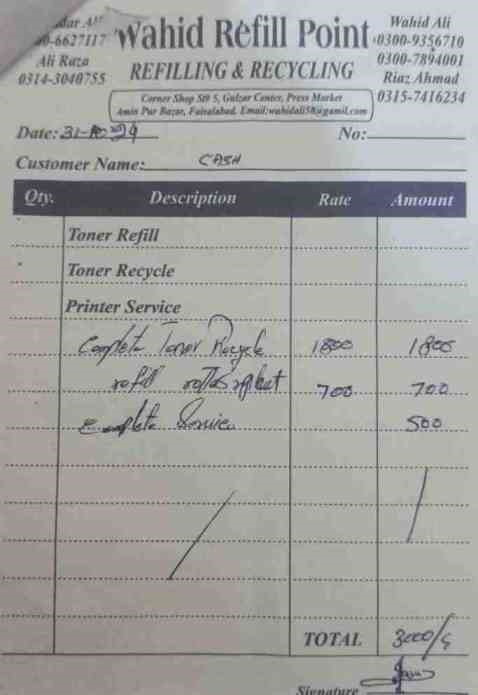 Wahid Refill Point
REFILLING & RECYCLING
-6627117
Ali Raza
0314-3040755
Wahid Ali
0300-9356710
0300-7894001
Riaz Ahmad
0315-7416234
Corner Shop St# 5, Gulzar Center, Press Market
Amin Pur Bazar, Faisalabad. Email:wahidali58@gamil.com
Date: 31-10-24 No:
Customer Name: CASH
Qty. Description Rate Amount
Toner Refill
Toner Recycle
Printer Service
Complete Toner Recycle 1800 1800
refill 700 700
Complete Service 500
TOTAL 3000/
Signature